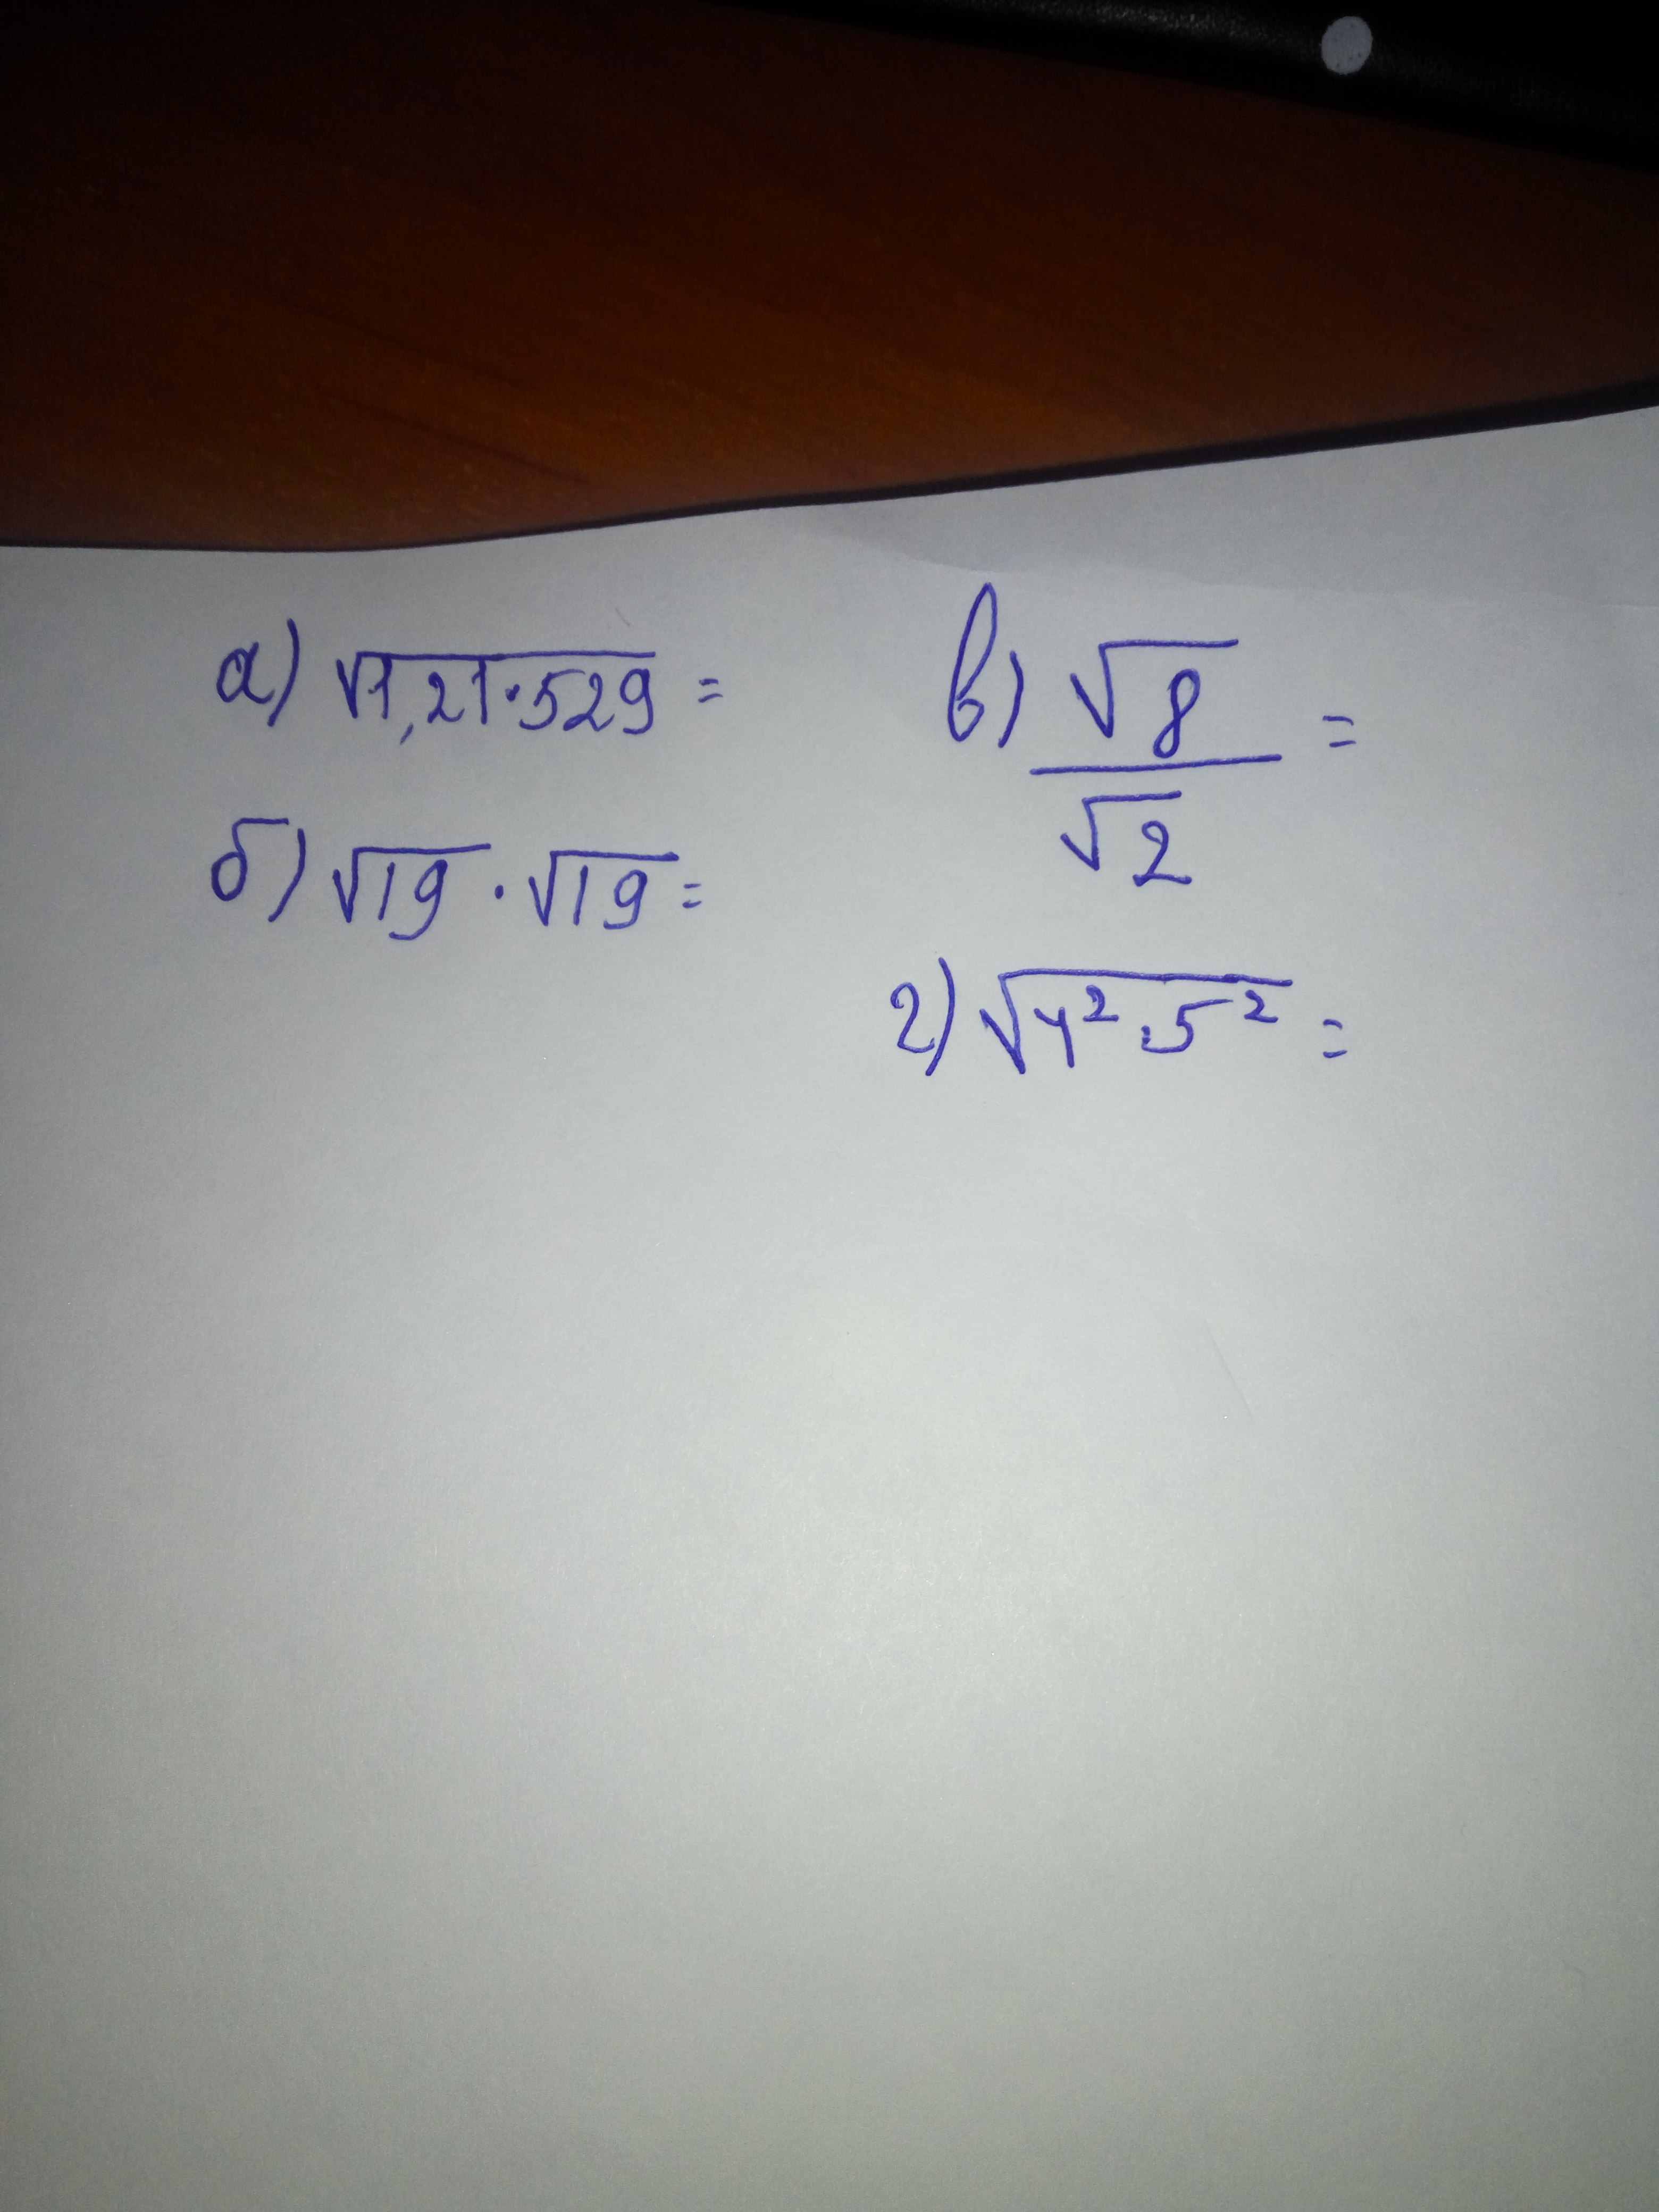 а) √1,21·529 =
б) √19 · √19 =
в) √8 / √2 =
г) √4² · 5² =